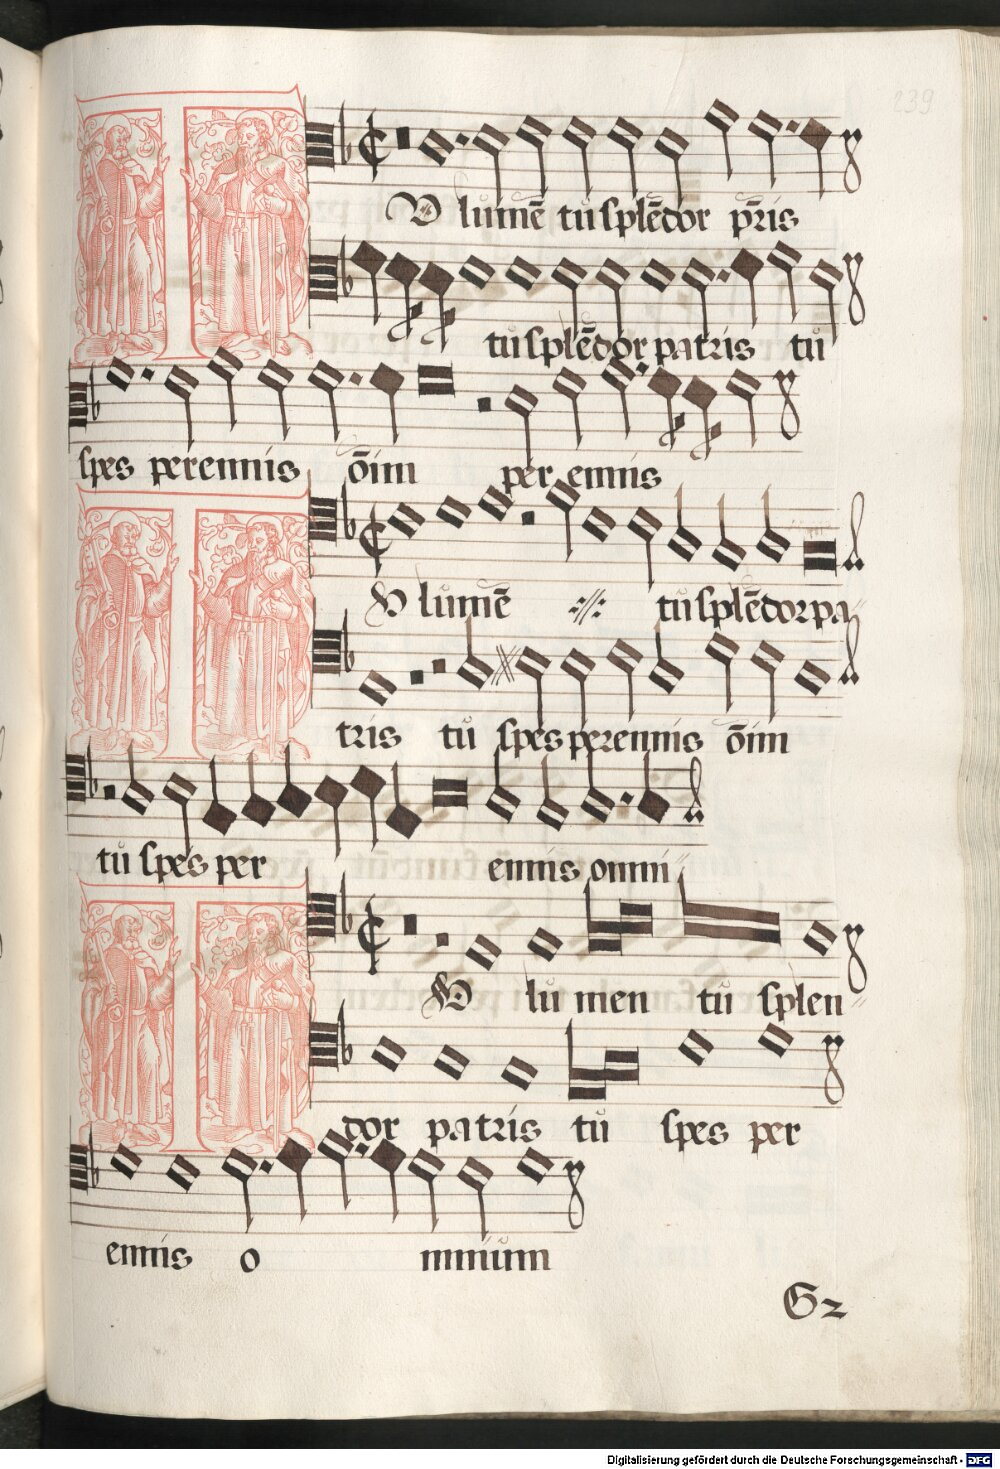 239
TV lumē tu splēdor pr̄is
tu splēdor patris tu
spes perennis oīm per ennis
TV lumē ·//· tu splēdor pa
tris tu spes perennis oīm
tu spes per ennis omni
TV lu men tu splen
dor patris tu spes per
ennis o mnium
G2
Digitalisierung gefördert durch die Deutsche Forschungsgemeinschaft - DFG